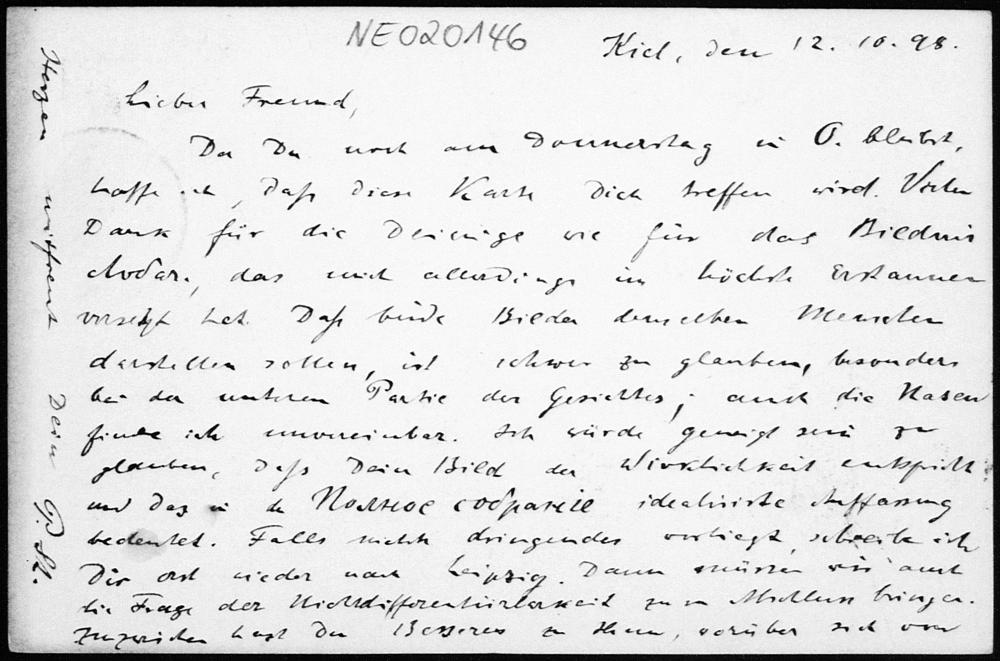 NEO20146
Kiel, den 12. 10. 98.
Lieber Freund,
Da Du noch am Donnerstag in O. bleibst,
hoffe ich, daß diese Karte Dich treffen wird. Vielen
Dank für die Deinige wie für das Bildnis
das mich allerdings in höchste Erstaunen
versetzt hat. Daß beide Bilder denselben Menschen
darstellen sollen, ist schwer zu glauben, besonders
bei der unteren Partie des Gesichtes; auch die Nasen
finde ich unvereinbar. Ich würde geneigt sein zu
glauben, daß Dein Bild der Wirklichkeit entspricht
und das in der Полное собраніе idealisirte Auffassung
bedeutet. Falls nichts dringendes vorliegt, schreibe ich
Dir erst wieder nach Leipzig. Dann müssen wir auch
die Frage der Nichtdifferentiirbarkeit zum Abschluss bringen.
Inzwischen hast Du Besseres zu thun, worüber sich von
Herzen mitfreut Dein P. St.